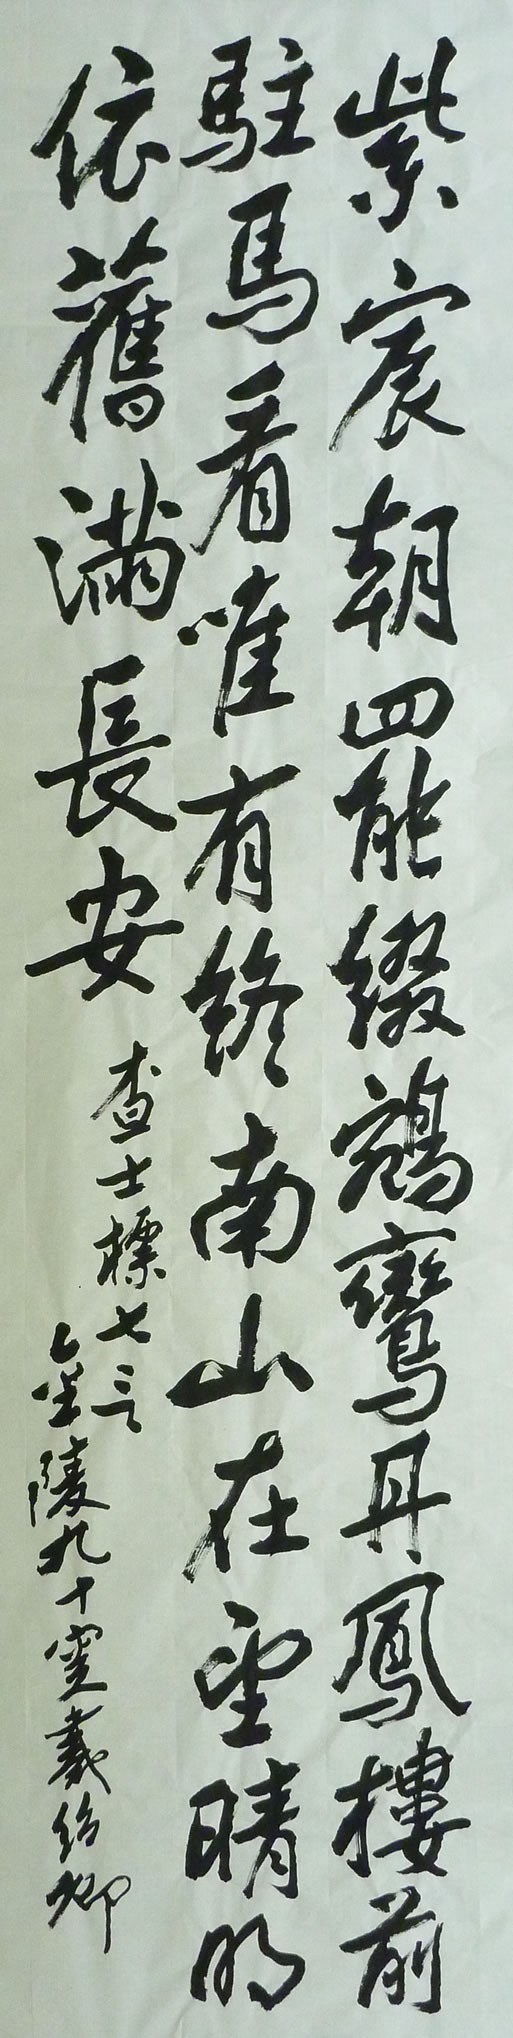 紫宸朝罷綴鵷鸞丹鳳樓前
駐馬看唯有終南山在望晴明
依舊滿長安
查士標七言
金陵九十叟紹卿